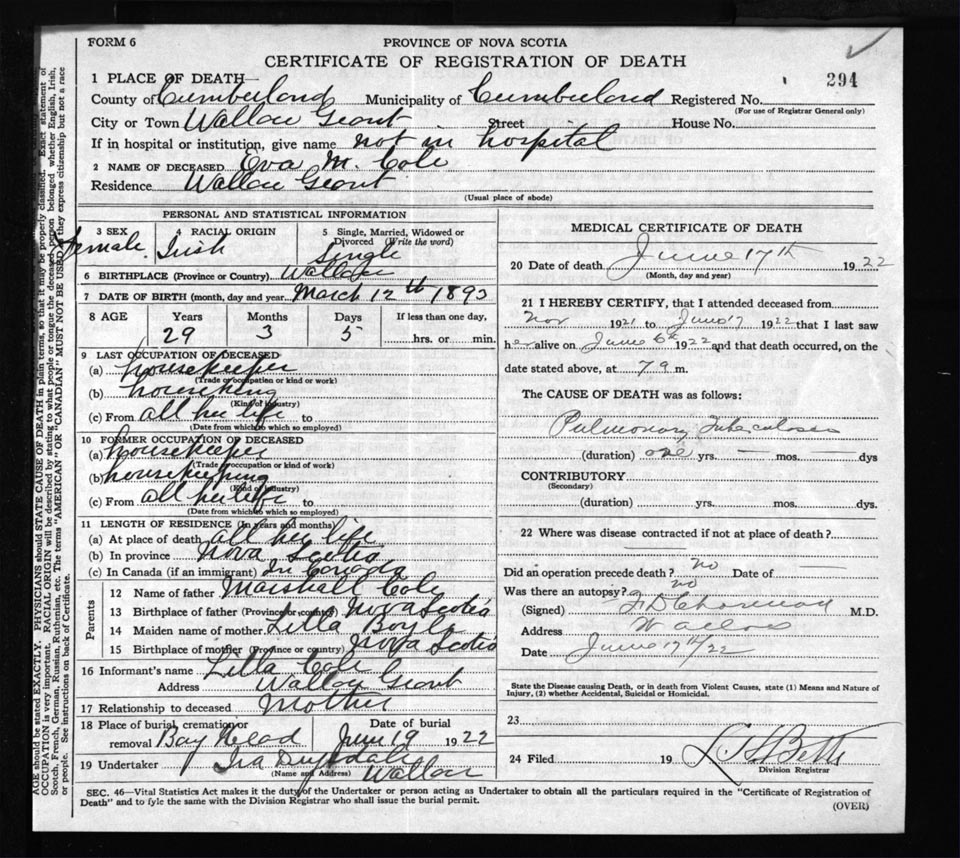 FORM 6
PROVINCE OF NOVA SCOTIA
CERTIFICATE OF REGISTRATION OF DEATH
294
1 PLACE OF DEATH—
County of Cumberland Municipality of Cumberland Registered No.
(For use of Registrar General only)
City or Town Wallace Street House No.
If in hospital or institution, give name not in hospital
2 NAME OF DECEASED Eva M. Cole
Residence Wallace
(Usual place of abode)
PERSONAL AND STATISTICAL INFORMATION
3 SEX 4 RACIAL ORIGIN 5 Single, Married, Widowed or Divorced (Write the word)
Female. Irish Single
6 BIRTHPLACE (Province or Country) Wallace
7 DATE OF BIRTH (month, day and year) March 12th 1893
8 AGE Years Months Days If less than one day,
29 3 5 hrs. or min.
9 LAST OCCUPATION OF DECEASED
(a) housekeeper
(Trade or occupation or kind or work)
(b)
(Kind of industry)
(c) From all her life to
(Date from which to which so employed)
10 FORMER OCCUPATION OF DECEASED
(a) housekeeper
(Trade or occupation or kind of work)
(b) housekeeping
(Kind of industry)
(c) From all her life to
(Date from which to which so employed)
11 LENGTH OF RESIDENCE (In years and months)
(a) At place of death all her life
(b) In province Nova Scotia
(c) In Canada (if an immigrant) In Canada
Parents
12 Name of father Marshall Cole
13 Birthplace of father (Province or country) Nova Scotia
14 Maiden name of mother Lilla Boyle
15 Birthplace of mother (Province or country) Nova Scotia
16 Informant's name Lilla Cole
Address Wallace
17 Relationship to deceased Mother
18 Place of burial, cremation or removal Bay Head Date of burial June 19 1922
19 Undertaker Ira
(Name and Address) Wallace
MEDICAL CERTIFICATE OF DEATH
20 Date of death June 17th 1922
(Month, day and year)
21 I HEREBY CERTIFY, that I attended deceased from
Nov 1921 to June 17 1922 that I last saw
her alive on June 6th 1922 and that death occurred, on the
date stated above, at 7 m.
The CAUSE OF DEATH was as follows:
Pulmonary Tuberculosis
(duration) one yrs. — mos. — dys
CONTRIBUTORY
(Secondary)
(duration) yrs. mos. dys.
22 Where was disease contracted if not at place of death?
Did an operation precede death? no Date of —
Was there an autopsy? no
(Signed) M.D.
Address Wallace
Date June 17th/22
State the Disease causing Death, or in death from Violent Causes, state (1) Means and Nature of
Injury, (2) whether Accidental, Suicidal or Homicidal.
23
24 Filed 19 Betts
Division Registrar
SEC. 46—Vital Statistics Act makes it the duty of the Undertaker or person acting as Undertaker to obtain all the particulars required in the "Certificate of Registration of
Death" and to fyle the same with the Division Registrar who shall issue the burial permit.
(OVER)
AGE should be stated EXACTLY. PHYSICIANS should STATE CAUSE OF DEATH in plain terms, so that it may be properly classified. Exact statement of
OCCUPATION is very important. RACIAL ORIGIN will be described by stating to what people or tongue the deceased person belonged whether English, Irish,
Scotch, French, German, Russian, Ruthenian, etc. The terms "AMERICAN" OR "CANADIAN" MUST NOT BE USED as they express citizenship but not a race
or people. See instructions on back of Certificate.